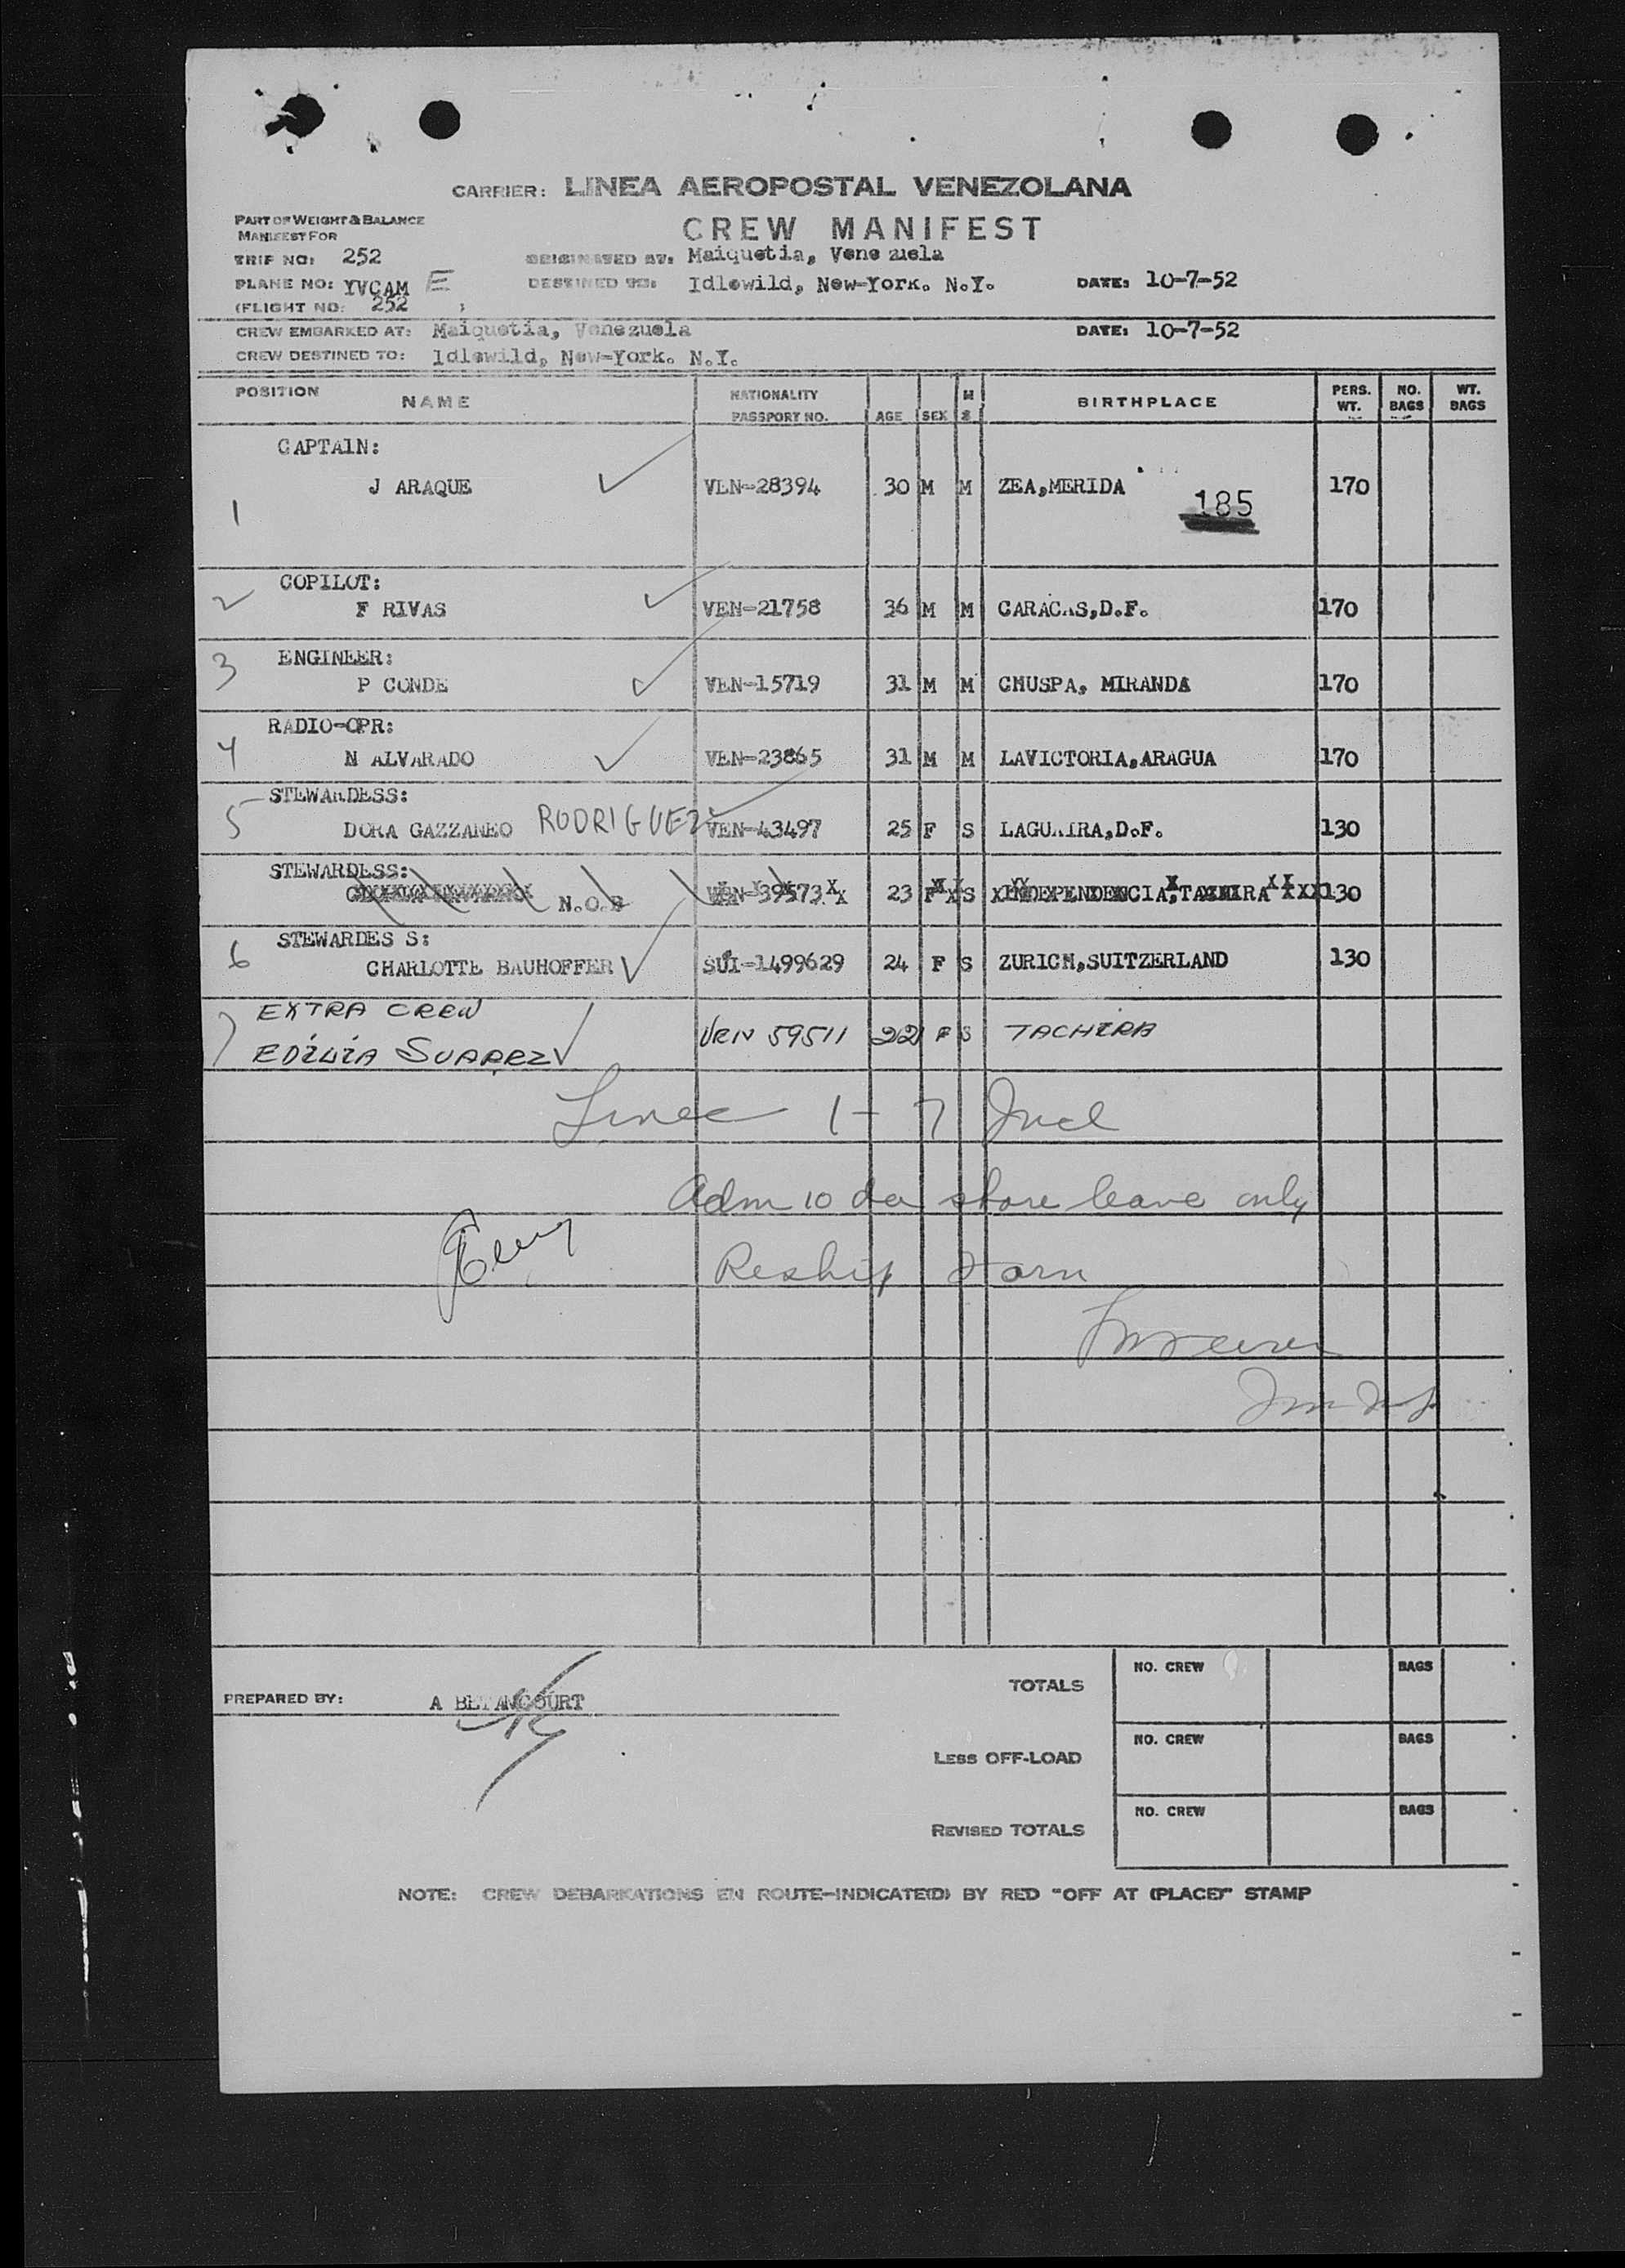 CARRIER: LINEA AEROPOSTAL VENEZOLANA
PART OF WEIGHT & BALANCE
MANIFEST FOR
CREW MANIFEST
TRIP NO: 252 ORIGINATED AT: Maiquetia, Venezuela
PLANE NO: YVCAM E DESTINED TO: Idlewild, New-York. N.Y. DATE: 10-7-52
(FLIGHT NO: 252 )
CREW EMBARKED AT: Maiquetia, Venezuela DATE: 10-7-52
CREW DESTINED TO: Idlewild, New-York. N.Y.
POSITION NAME NATIONALITY PASSPORT NO. AGE SEX M S BIRTHPLACE PERS. WT. NO. BAGS WT. BAGS
CAPTAIN:
J ARAQUE VEN-28394 30 M M ZEA,MERIDA 170
1 185
COPILOT:
2 F RIVAS VEN-21758 36 M M CARACAS,D.F. 170
ENGINEER:
3 P CONDE VEN-15719 31 M M CHUSPA, MIRANDA 170
RADIO-OPR:
4 N ALVARADO VEN-23865 31 M M LAVICTORIA,ARAGUA 170
STEWARDESS:
5 DORA GAZZANEO RODRIGUEZ VEN-43497 25 F S LAGUAIRA,D.F. 130
STEWARDESS:
N.O.B VEN-39573 23 F S INDEPENDENCIA,TACHIRA 130
STEWARDES S:
6 CHARLOTTE BAUHOFFER SUI-1499629 24 F S ZURICH,SUITZERLAND 130
EXTRA CREW
7 EDILIA SUAREZ VEN 59511 22 F S TACHIRA
Lines 1-7 Incl
Adm 10 da shore leave only
Reship
PREPARED BY: A BETANCOURT
TOTALS NO. CREW BAGS
LESS OFF-LOAD NO. CREW BAGS
REVISED TOTALS NO. CREW BAGS
NOTE: CREW DEBARKATIONS EN ROUTE-INDICATE(D) BY RED "OFF AT (PLACE)" STAMP